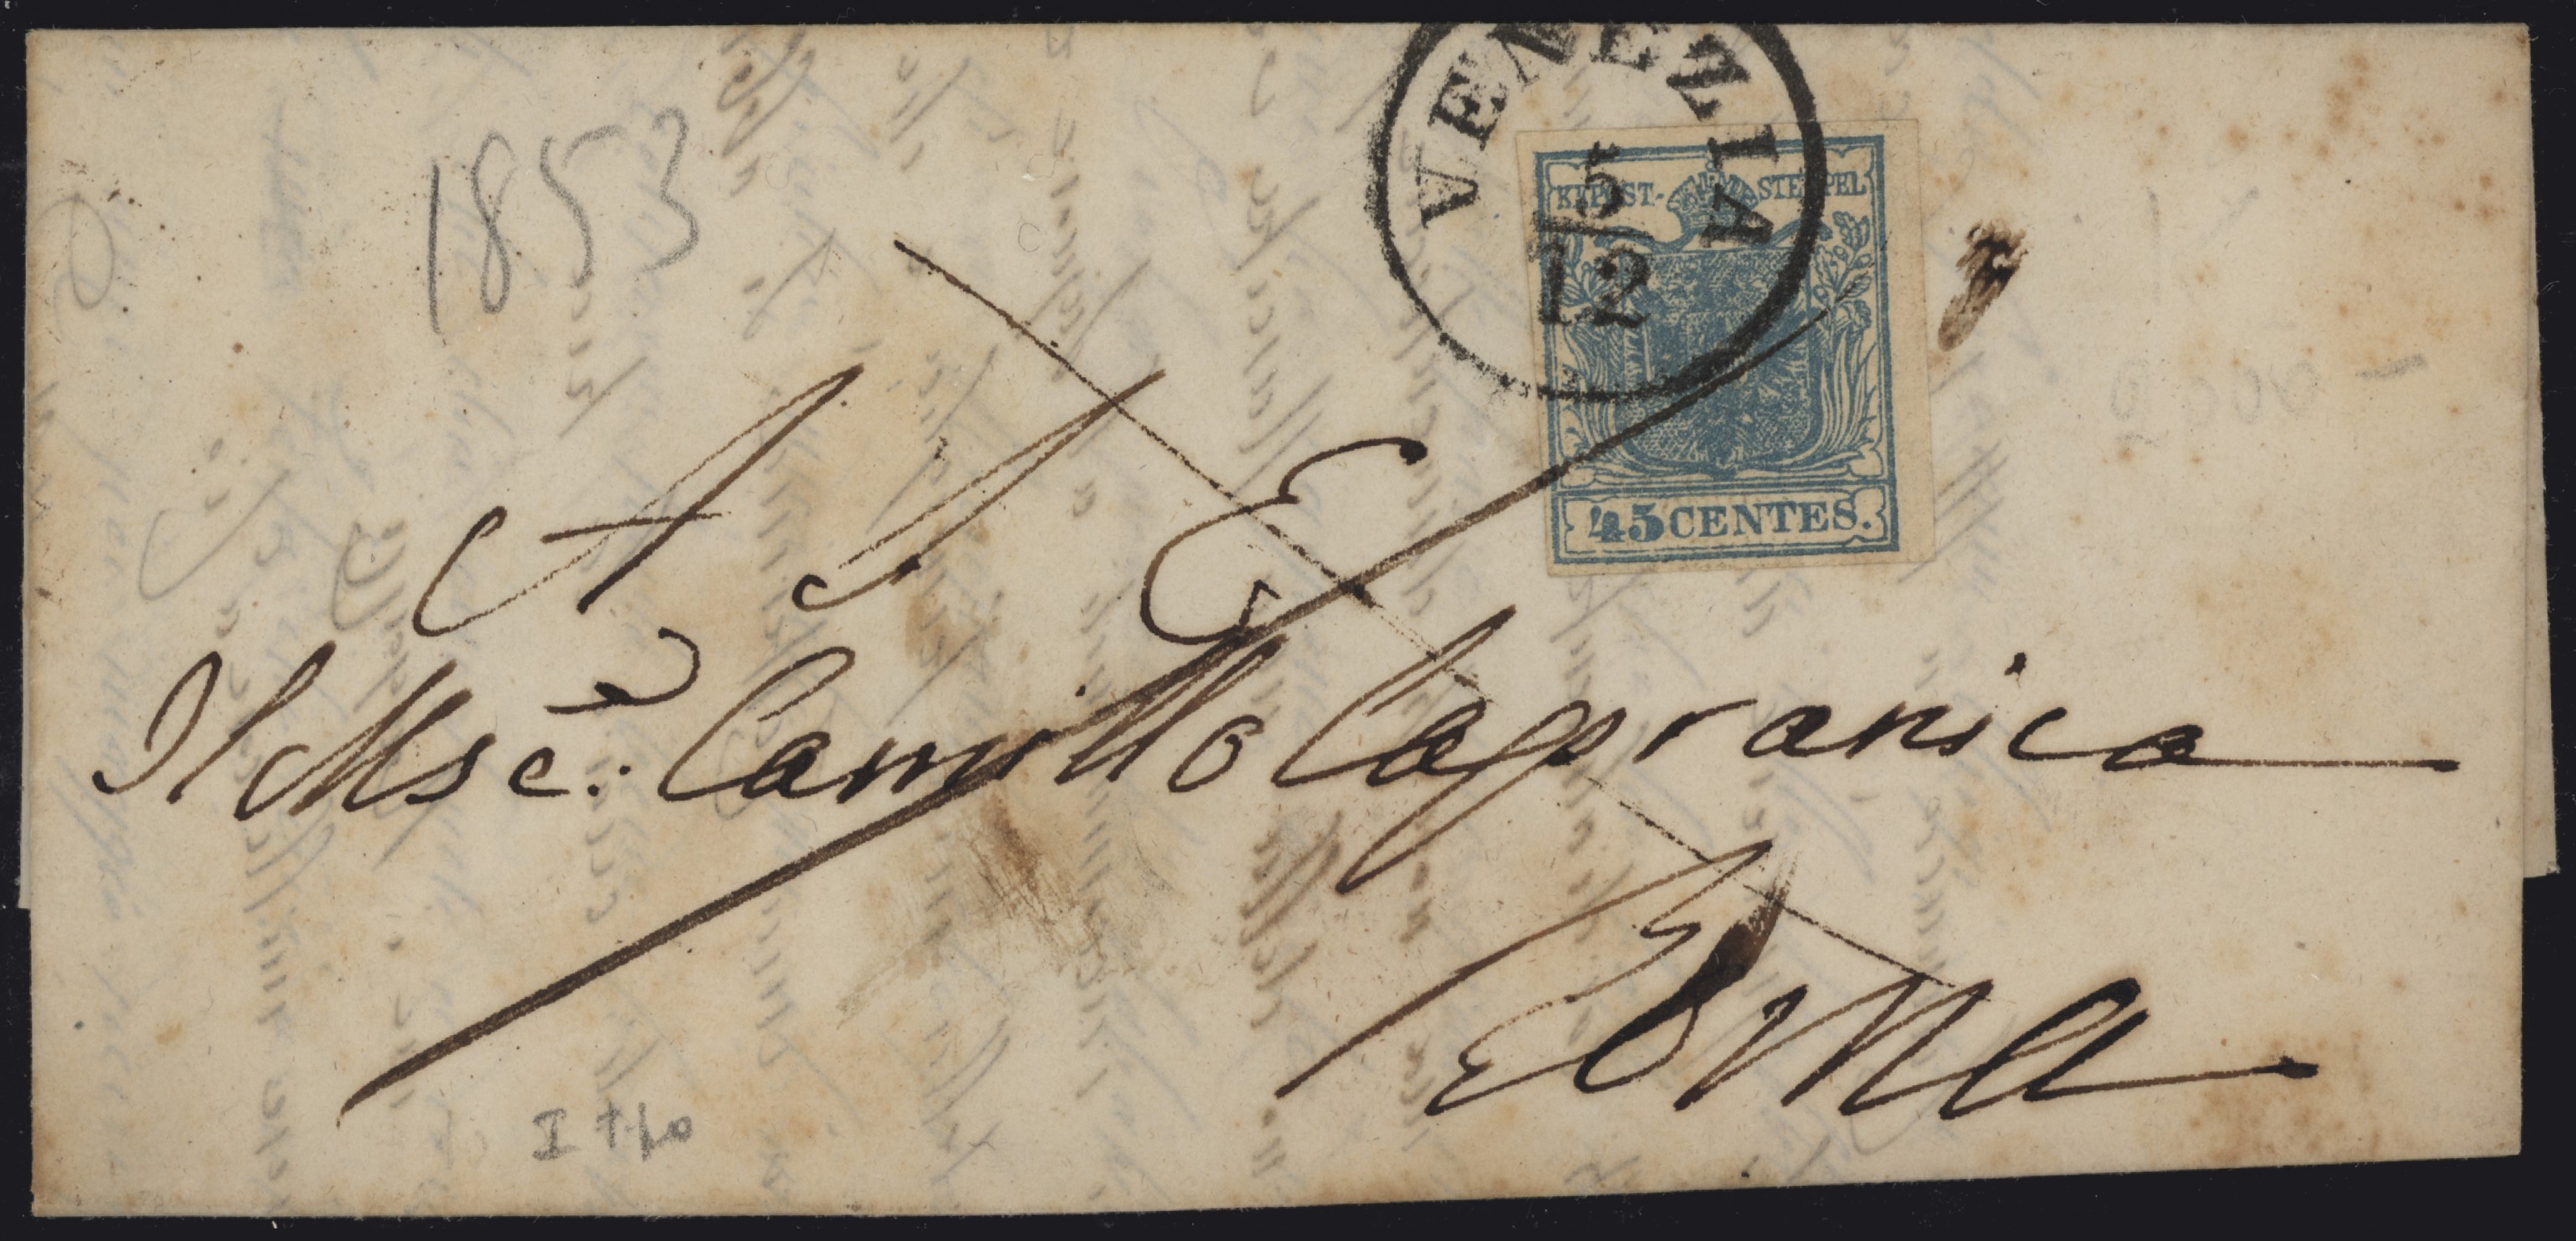 1853
VENEZIA
5
12
KKPOST- STEMPEL
45 CENTES.
A S E
Il Msē: Camillo Capranica
Roma